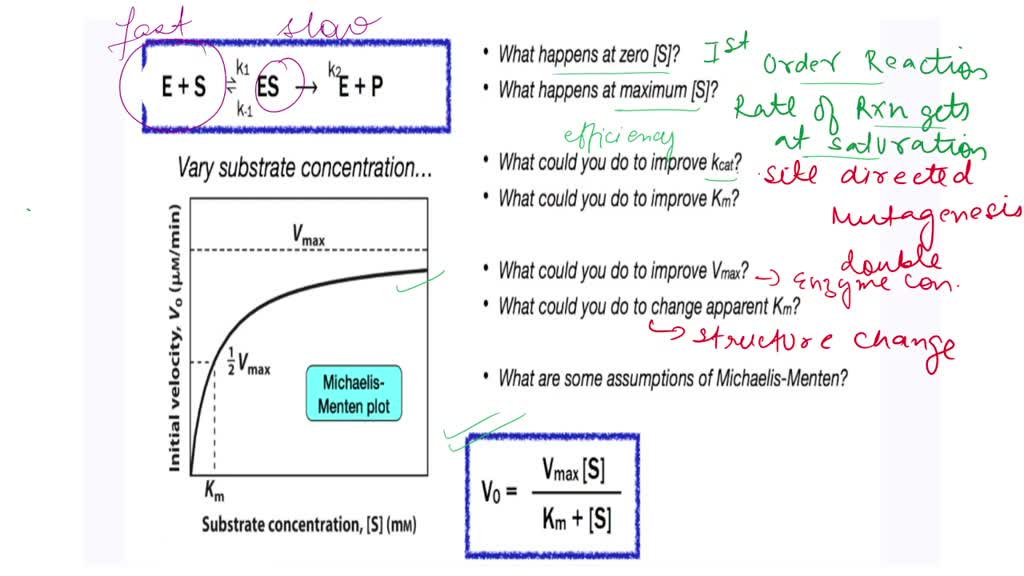 fast slow
E + S ⇌ ES → E + P
k1 k-1 k2
Vary substrate concentration...
Initial velocity, V0 (µM/min)
Vmax
½ Vmax
Michaelis-
Menten plot
Km
Substrate concentration, [S] (mM)
• What happens at zero [S]? Ist Order Reaction
• What happens at maximum [S]? Rate of Rxn gets
at saturation
efficiency
• What could you do to improve kcat? site directed
Mutagenesis
• What could you do to improve Km?
double
• What could you do to improve Vmax? → Enzyme con.
• What could you do to change apparent Km?
↳ structure change
• What are some assumptions of Michaelis-Menten?
V0 = Vmax [S]
Km + [S]